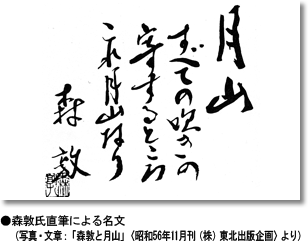 月山
すべての吹きの
寄するところ
これ月山なり
森敦
●森敦氏直筆による名文
(写真・文章：「森敦と月山」〈昭和56年11月刊 (株) 東北出版企画〉より)